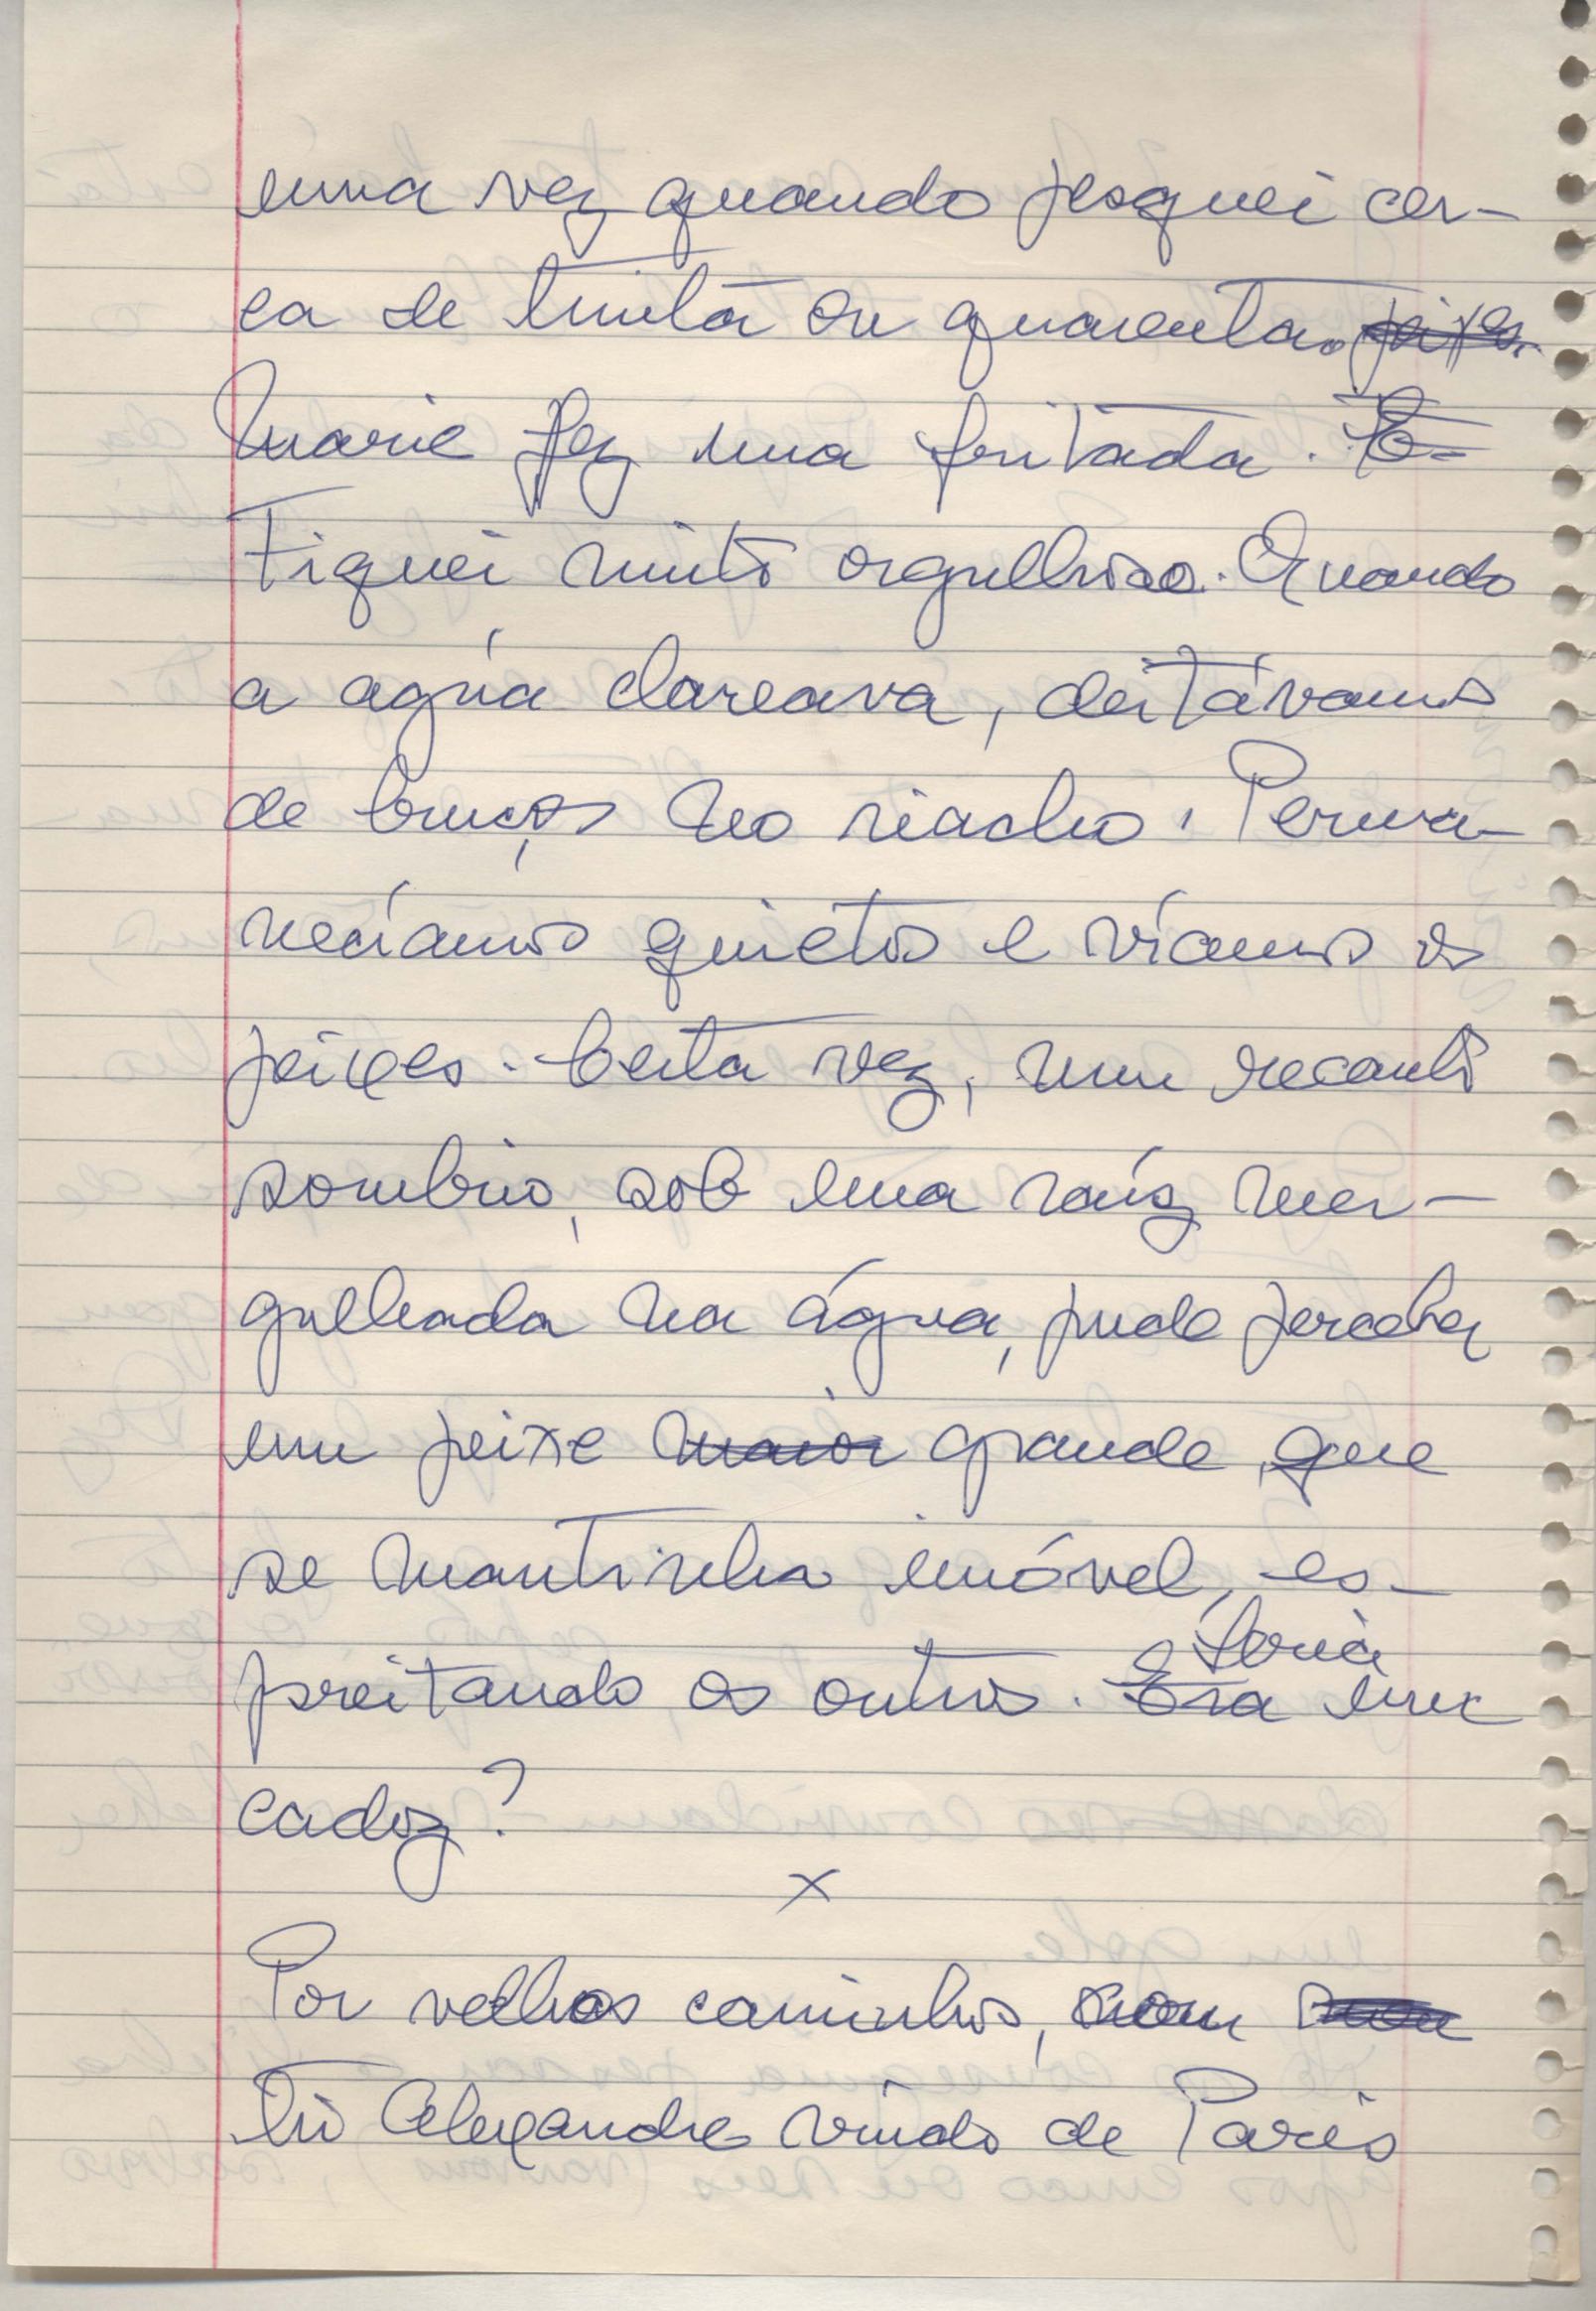 uma vez quando pesquei cer-
ca de trinta ou quarenta. peixes.
Marie fez uma fritada. E
Fiquei muito orgulhoso. Quando
a agúa clareava, deitávamos
de bruços no riacho. Perma-
necíamos quietos e víamos os
peixes. Certa vez, num recanto
sombrio, sob uma raíz mer-
gulhada na água, pude perceber
um peixe maior grande, que
se mantinha imóvel, es-
preitando os outros. Era um
Seria
cadoz?
x
Por velhos caminhos,
tio Alexandre vindo de Paris